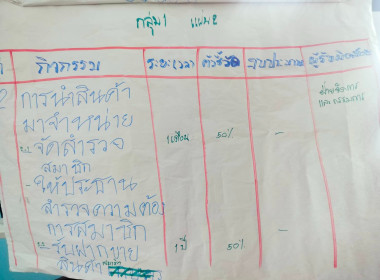 กลุ่ม 1 แผน 2
กิจกรรม ระยะเวลา ตัวชี้วัด งบประมาณ ผู้รับผิดชอบ
2 การนำสินค้า
มาจำหน่าย
จัดสำรวจ 1 เดือน 50% -
สมาชิก
- ให้ประธาน
สำรวจความต้อง
การสมาชิก
รับฝากขาย 1 ปี 50% -
สินค้า